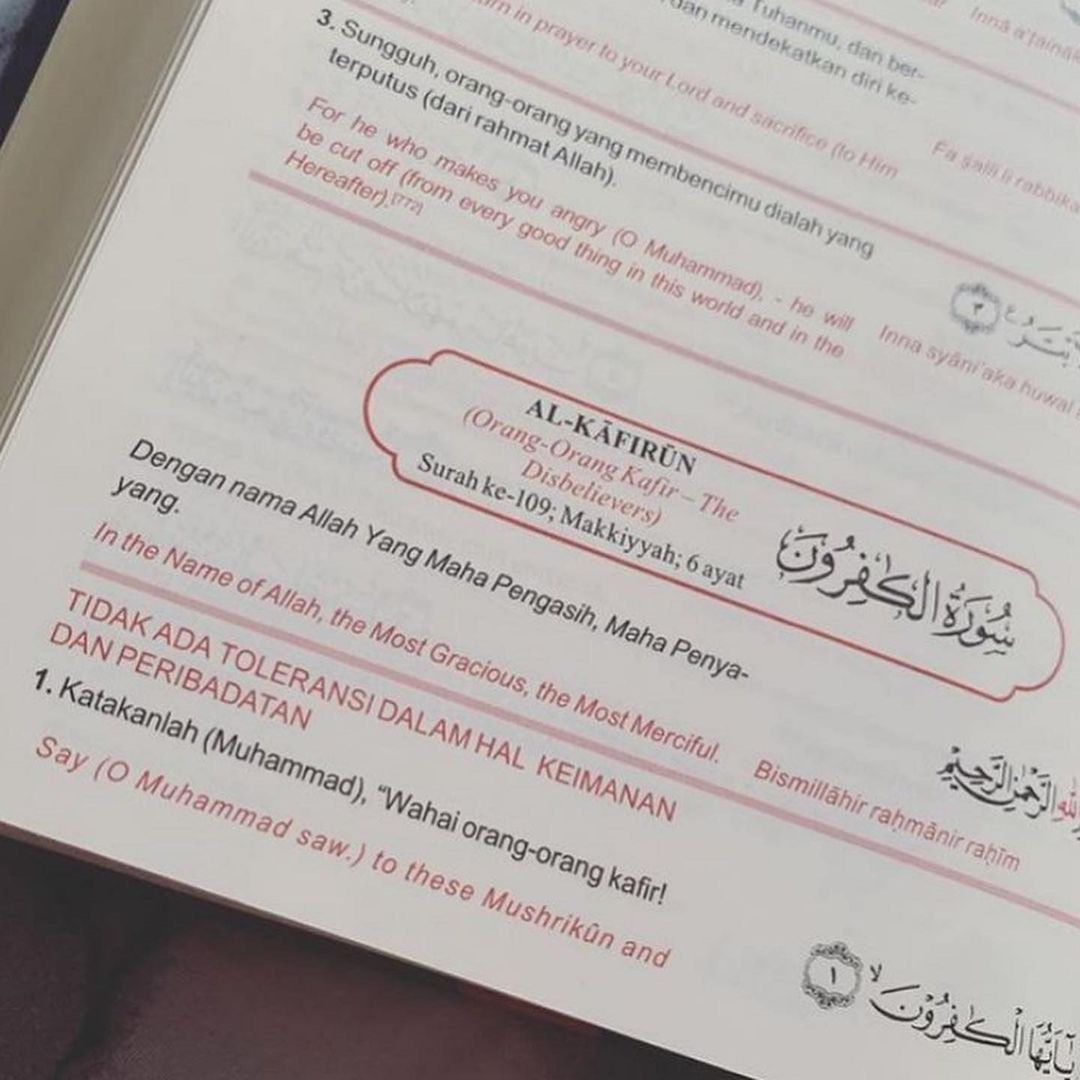 a Tuhanmu, dan ber-
dan mendekatkan diri ke-
in prayer to your Lord and sacrifice (to Him
Fa ṣalli li rabbika
3. Sungguh, orang-orang yang membencimu dialah yang
terputus (dari rahmat Allah).
For he who makes you angry (O Muhammad), - he will
be cut off (from every good thing in this world and in the
Hereafter).[772]
Inna syâni'aka huwal
٣
AL-KĀFIRŪN
(Orang-Orang Kafir – The
Disbelievers)
Surah ke-109; Makkiyyah; 6 ayat
سُوْرَةُ الْكٰفِرُوْنَ
Dengan nama Allah Yang Maha Pengasih, Maha Penya-
yang.
In the Name of Allah, the Most Gracious, the Most Merciful.
Bismillāhir raḥmānir raḥīm
اللّٰهِ الرَّحْمٰنِ الرَّحِيْمِ
TIDAK ADA TOLERANSI DALAM HAL KEIMANAN
DAN PERIBADATAN
1. Katakanlah (Muhammad), “Wahai orang-orang kafir!
Say (O Muhammad saw.) to these Mushrikûn and
يٰٓاَيُّهَا الْكٰفِرُوْنَ ۙ ١